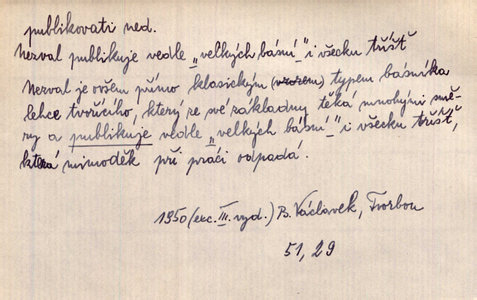 publikovati ned.
Nezval publikuje vedle „velkých básní" i všecku tříšť
Nezval je ovšem přímo klasickým (vzorem) typem básníka
lehce tvořícího, který ze své základny těká mnohými smě-
ry a publikuje vedle „velkých básní" i všecku tříšť,
která mimoděk při práci odpadá.
1950 (exc. III. vyd.) B. Václavek, Tvorbou
51, 29